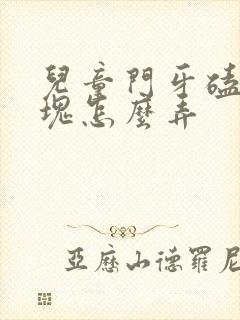 兒童門牙磕
塊怎麼弄
亞歷山德羅尼